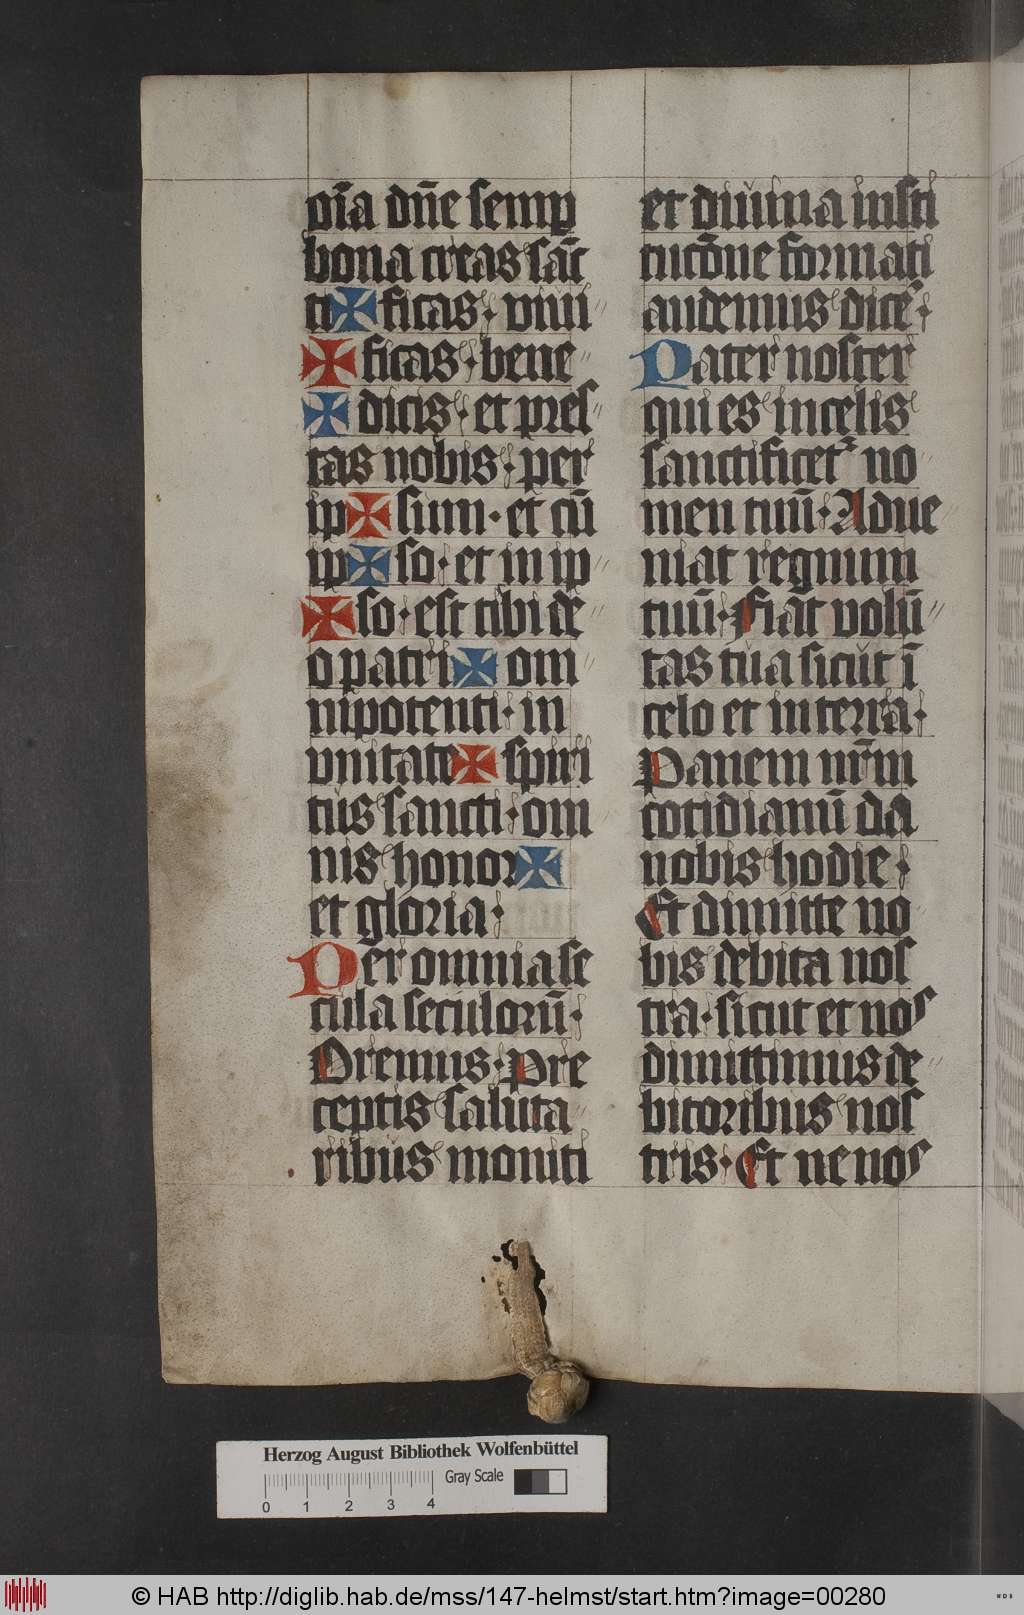 oīa dn̄e semp
bona creas sāc
ti✠ficas · viui
✠ficas · bene
✠dicis · et pres
tas nobis · per
ip✠sum · et cū
ip✠so · et in ip
✠so · est tibi de
o patri✠om
nipotenti · in
vnitate✠spiri
tus sancti · om
nis honor✠
et gloria ·
Per omnia se
cula seculorū ·
Oremus · Pre
ceptis saluta
ribus moniti
et diuina insti
tucōne formati
audemus dicē ·
Pater noster
qui es in celis
sanctificet᷑ no
men tuū · Adue
niat regnum
tuū · Fiat volū
tas tua sicut ī
celo et in terra ·
Panem nr̄m
cotidianū da
nobis hodie ·
Et dimitte no
bis debita nos
tra · sicut et nos
dimittimus de
bitoribus nos
tris · Et ne nos
Herzog August Bibliothek Wolfenbüttel
Gray Scale
0 1 2 3 4
© HAB http://diglib.hab.de/mss/147-helmst/start.htm?image=00280